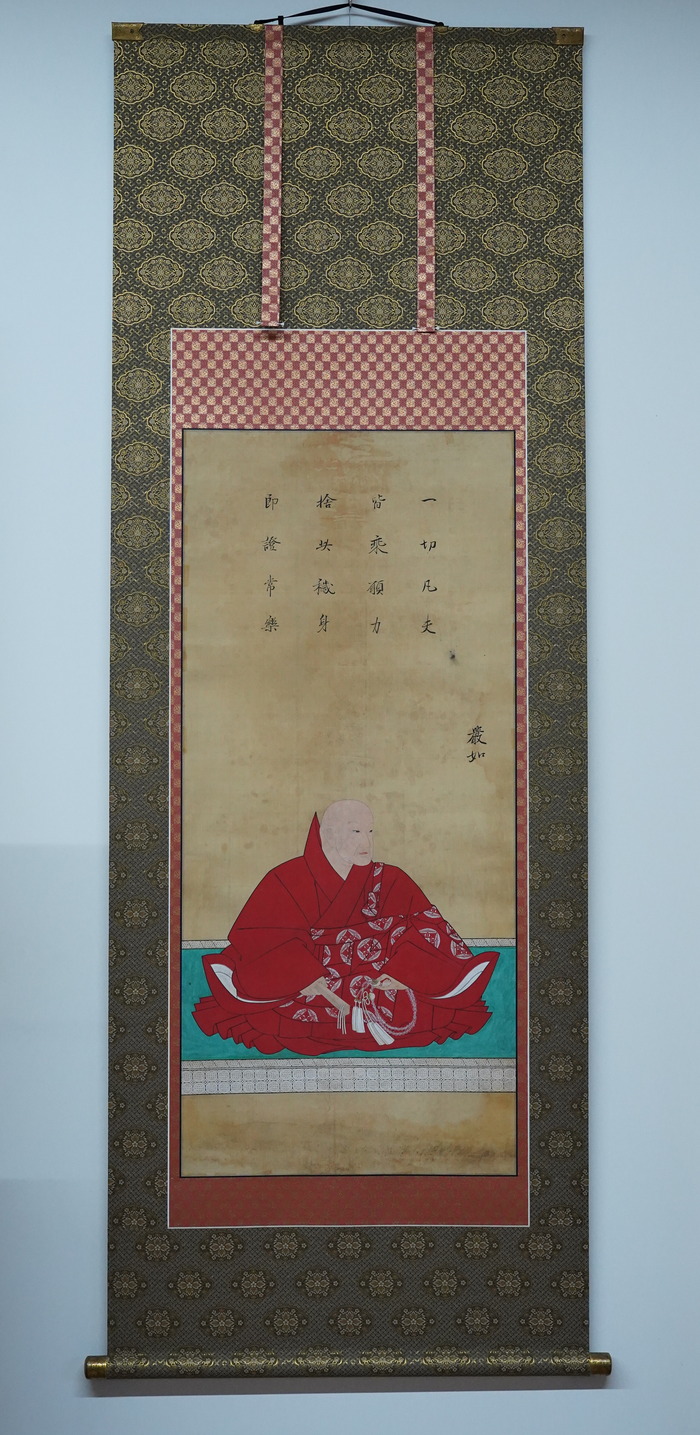 一切凡夫
皆乘願力
捨此穢身
即證常樂
嚴如